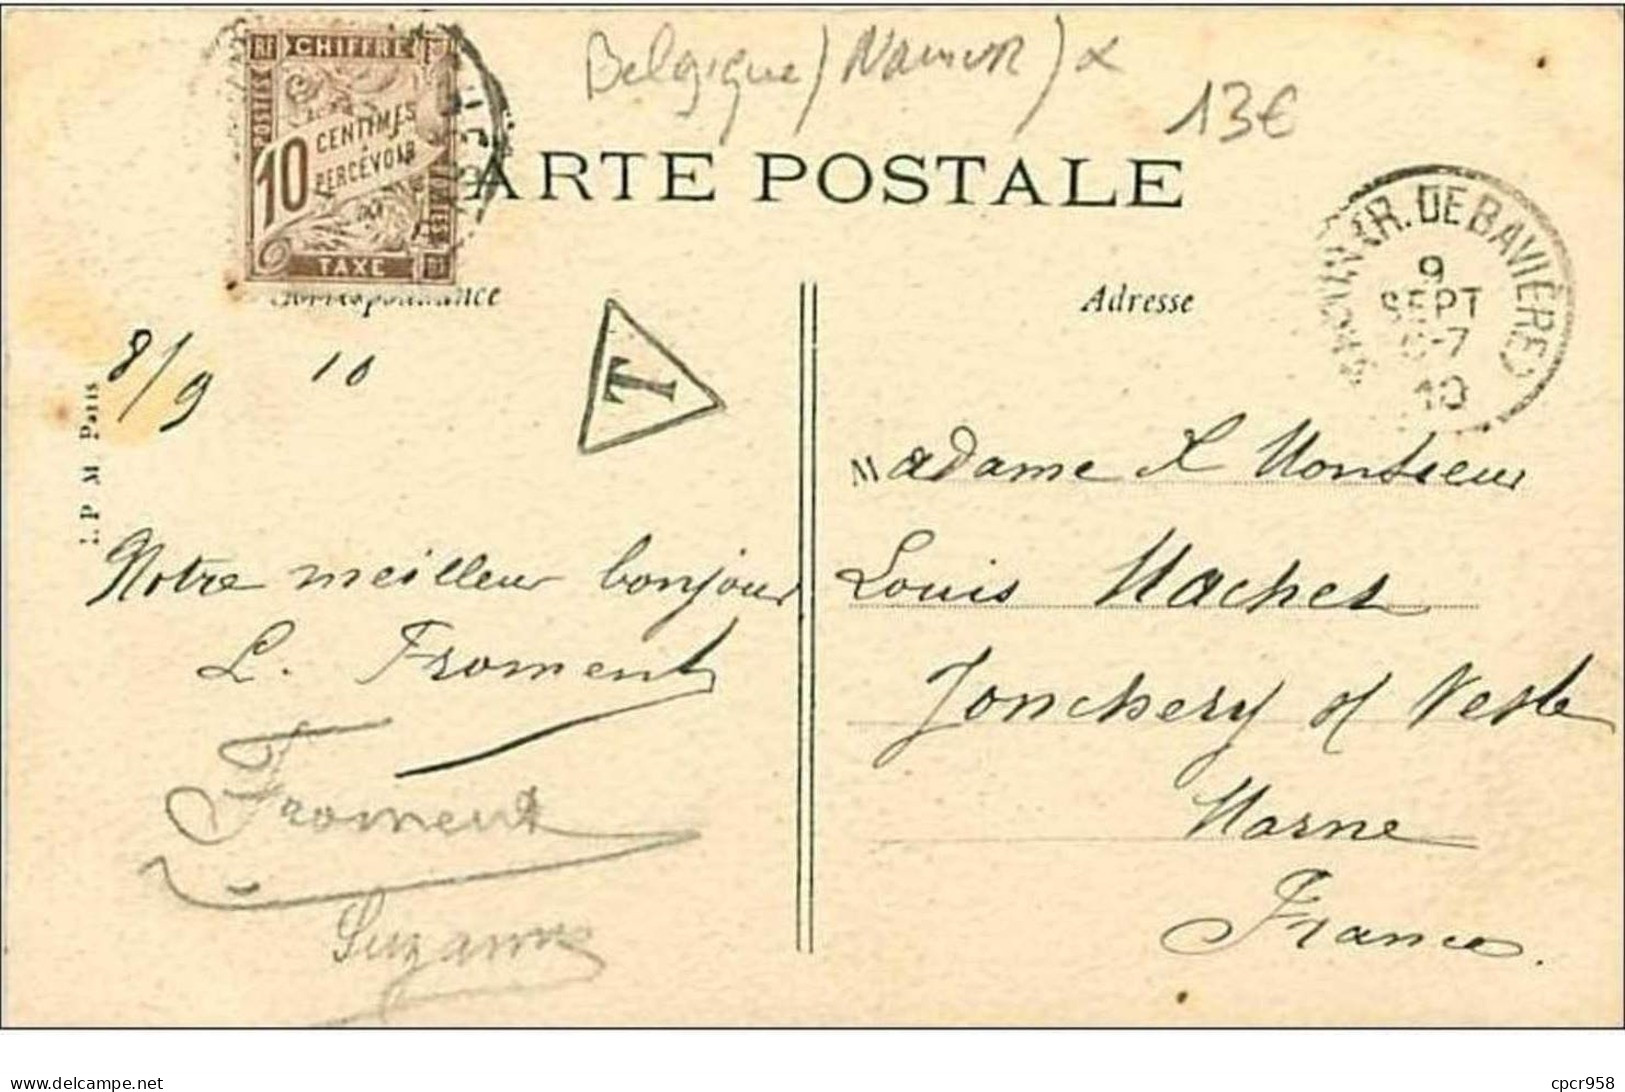 Belgique / Namur / α
13€
RF CHIFFRE
POSTES
10 CENTIMES
A PERCEVOIR
TAXE
CARTE POSTALE
Correspondance
Adresse
BRUX R. DE BAVIÈRE
9
SEPT
-7
10
8/9 10
T
I. P. M. Paris
Notre meilleur bonjour
L. Froment
Froment
Suzanne
Madame & Monsieur
Louis Machet
Jonchery s/ Vesle
Marne
France.
cpcr958